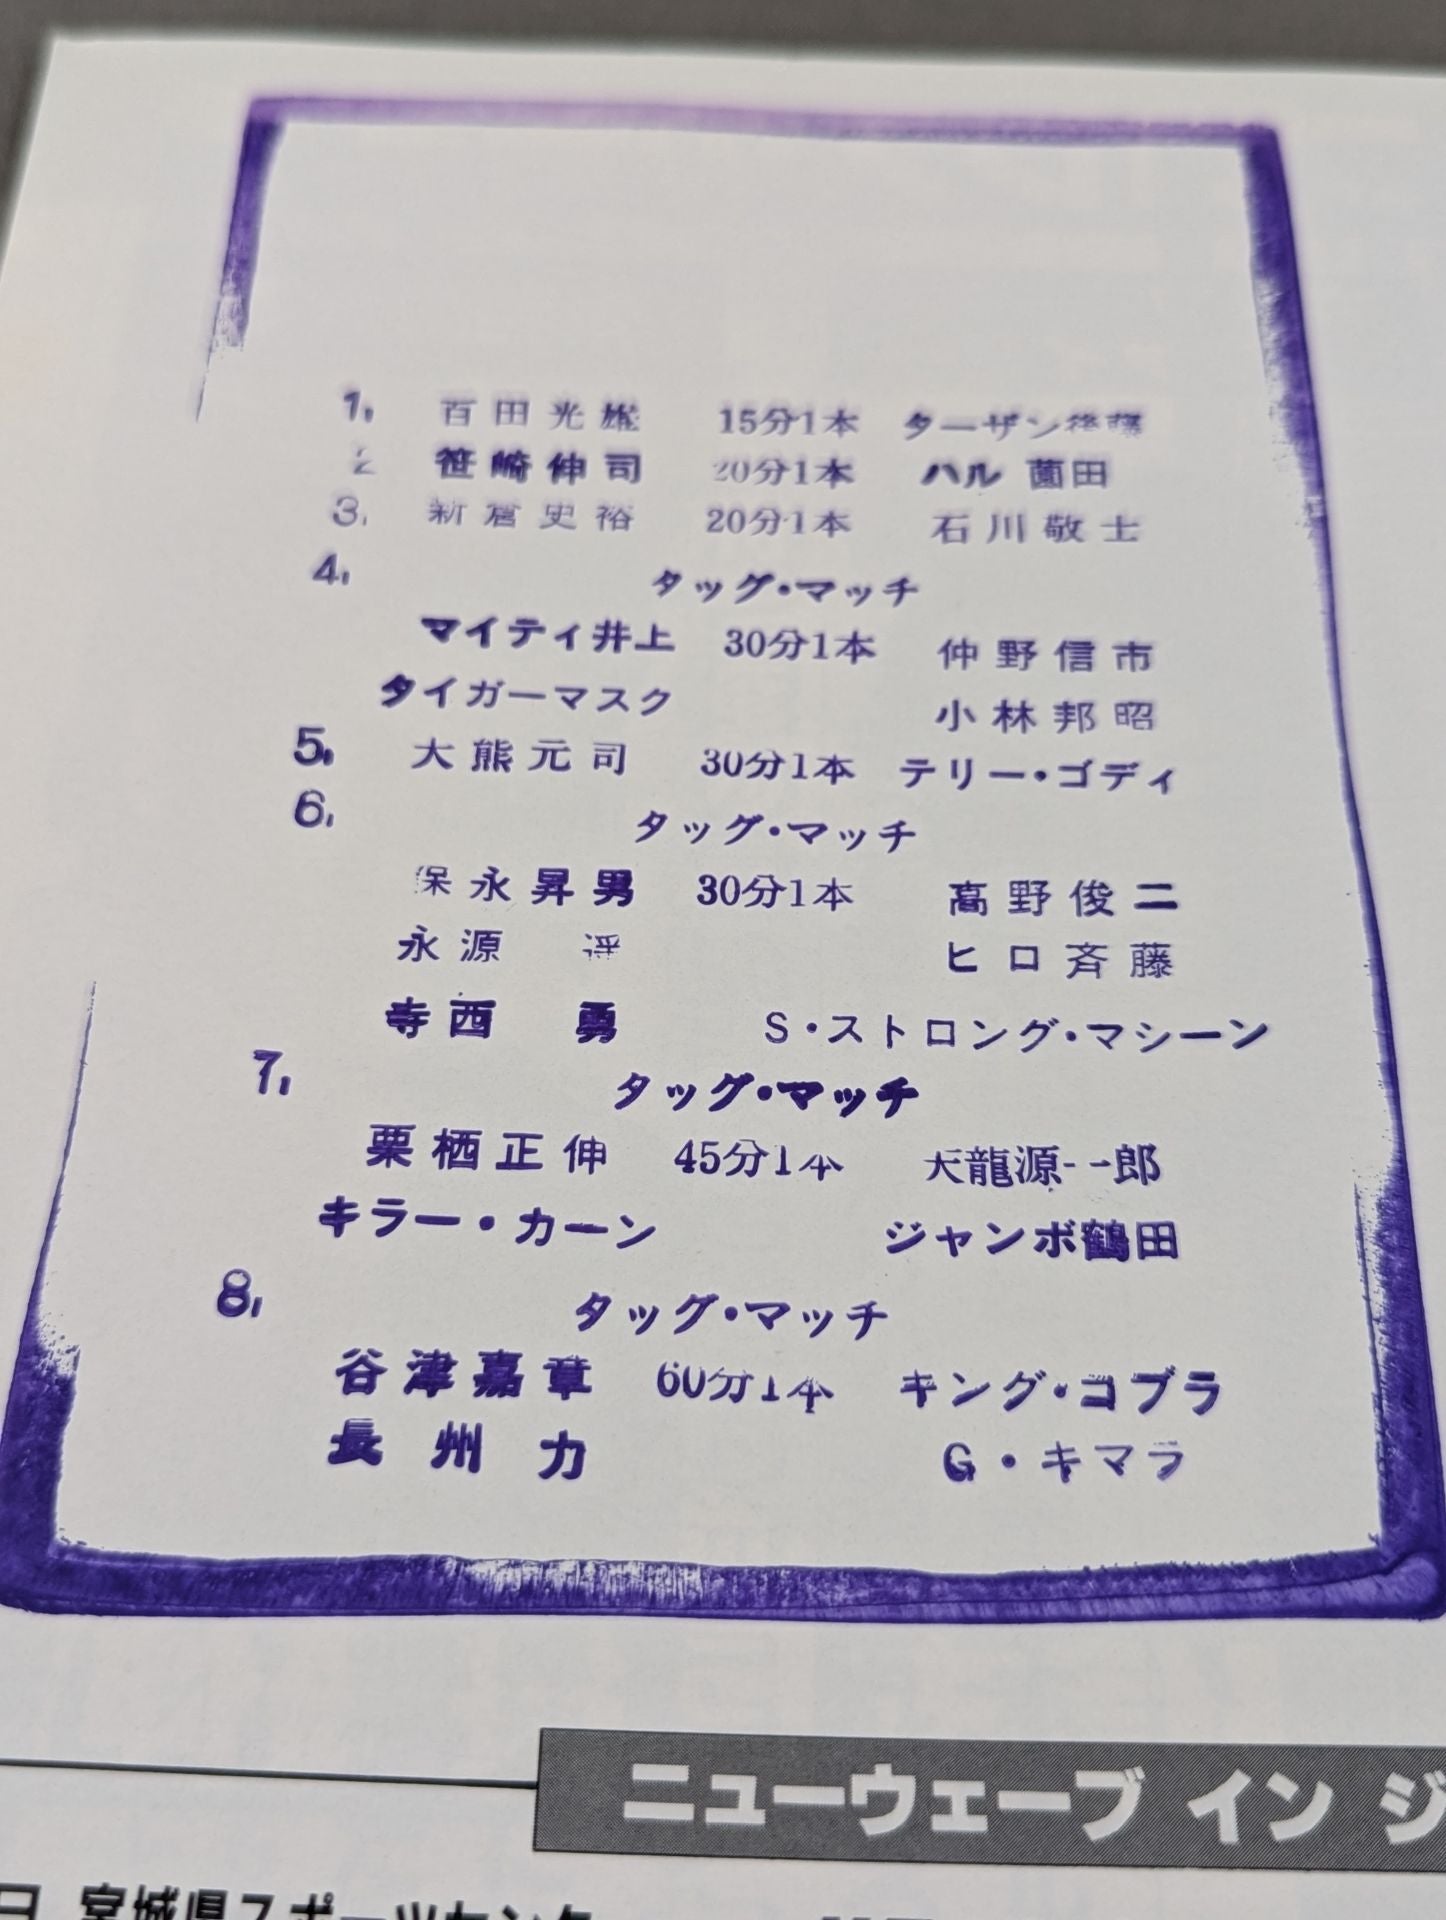 1. 百田光雄 15分1本 ターザン後藤
2 笹崎伸司 20分1本 ハル薗田
3. 新倉史裕 20分1本 石川敬士
4. タッグ・マッチ
マイティ井上 30分1本 仲野信市
タイガーマスク 小林邦昭
5. 大熊元司 30分1本 テリー・ゴディ
6. タッグ・マッチ
保永昇男 30分1本 高野俊二
永源遥 ヒロ斉藤
寺西勇 S・ストロング・マシーン
7. タッグ・マッチ
栗栖正伸 45分1本 天龍源一郎
キラー・カーン ジャンボ鶴田
8. タッグ・マッチ
谷津嘉章 60分1本 キング・コブラ
長州力 G・キマラ
ニューウェーブ イン ジ
日 宮城県スポーツセンタ